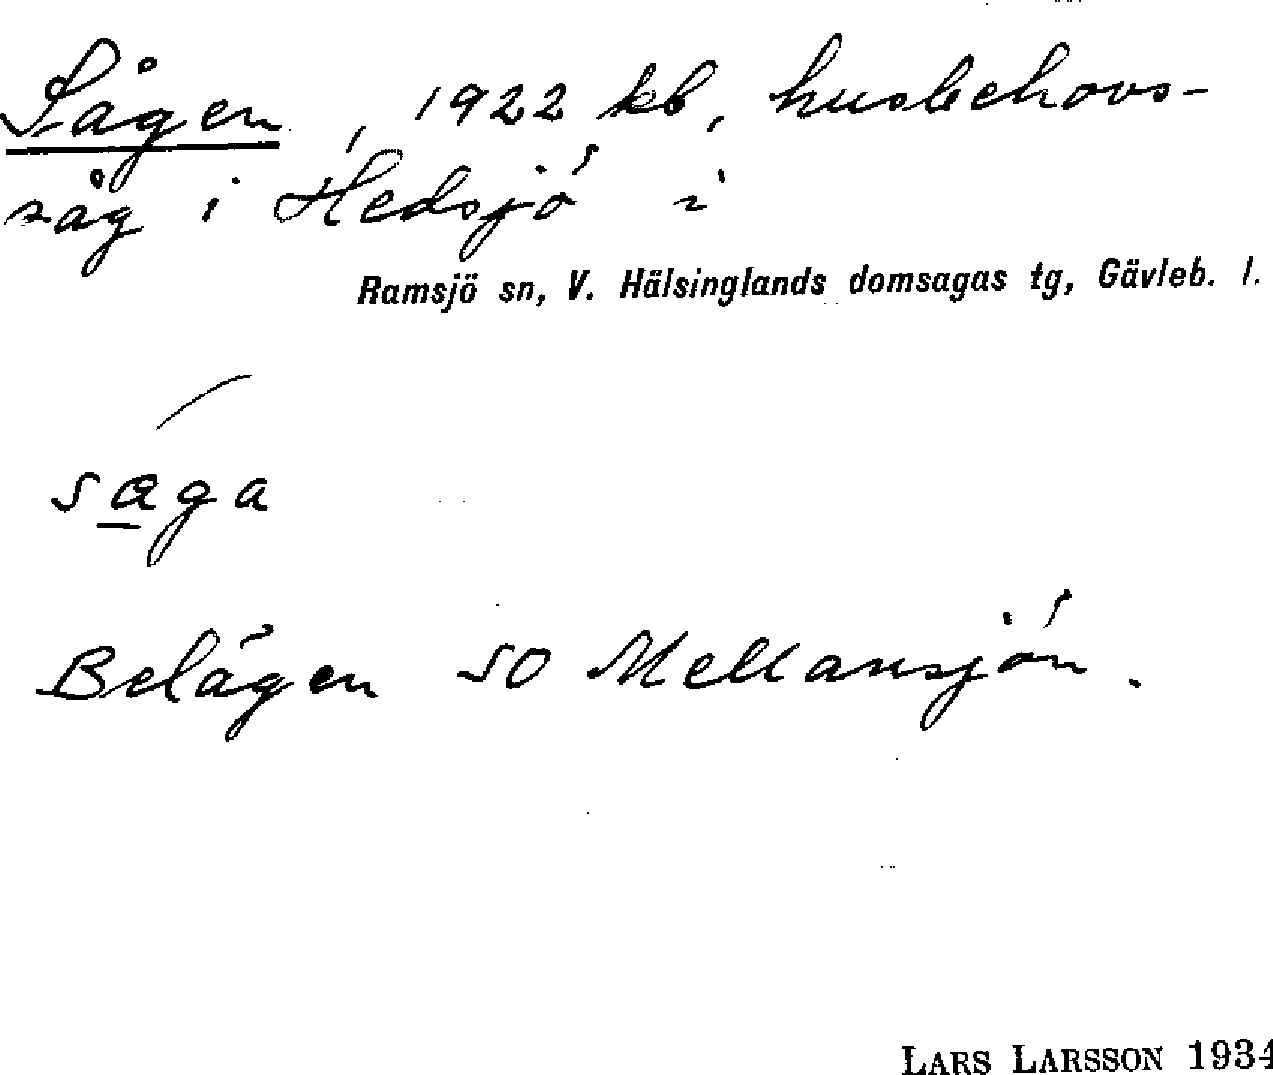 Sågen, 1922 kb, husbehovs-
såg i Hedsjö i
Ramsjö sn, V. Hälsinglands domsagas tg, Gävleb. l.
saga
Belägen SO Mellansjön.
LARS LARSSON 1934